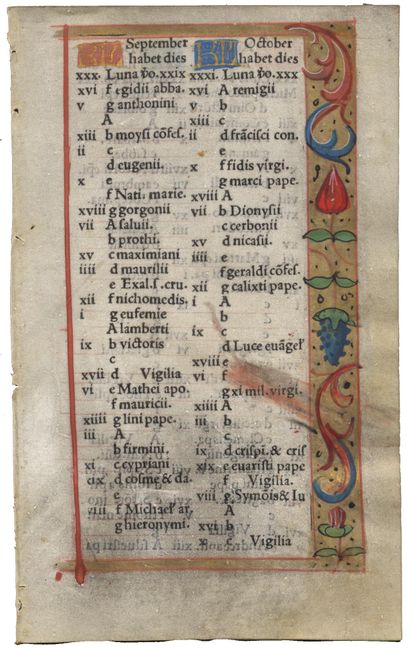 September
habet dies
xxx. Luna vo. xxix
xvi f egidii abba.
v g anthonini
A
xiii b moysi cōfes.
ii c
d eugenii.
x e
f Nati. marie.
xviii g gorgonii
vii A saluii.
b prothi.
xv c maximiani
iiii d maurilii
e Exal. s. cru.
xii f nichomedis.
i g eufemie
A lamberti
ix b victoris
c
xvii d Vigilia
vi e Mathei apo.
f mauricii.
xiiii g lini pape.
iii A
b firmini.
xi c cypriani
xix d cosme & da.
e
viii f Michael' ar.
g hieronymi.
October
habet dies
xxxi. Luna vo. xxx
xvi A remigii
v b
xiii c
ii d frācisci con.
e
x f fidis virgi.
g marci pape.
xviii A
vii b Dionysii
c cerbonii
xv d nicasii.
iiii e
f geraldi cōfes.
xii g calixti pape.
i A
b
ix c
d Luce euāgel'
xviii e
vi f
g xi mil. virgi.
xiiii A
iii b
c
ix d crispi. & cris
xix e euaristi pape
f Vigilia.
viii g Symōis & Iu
A
xvi b
v c Vigilia